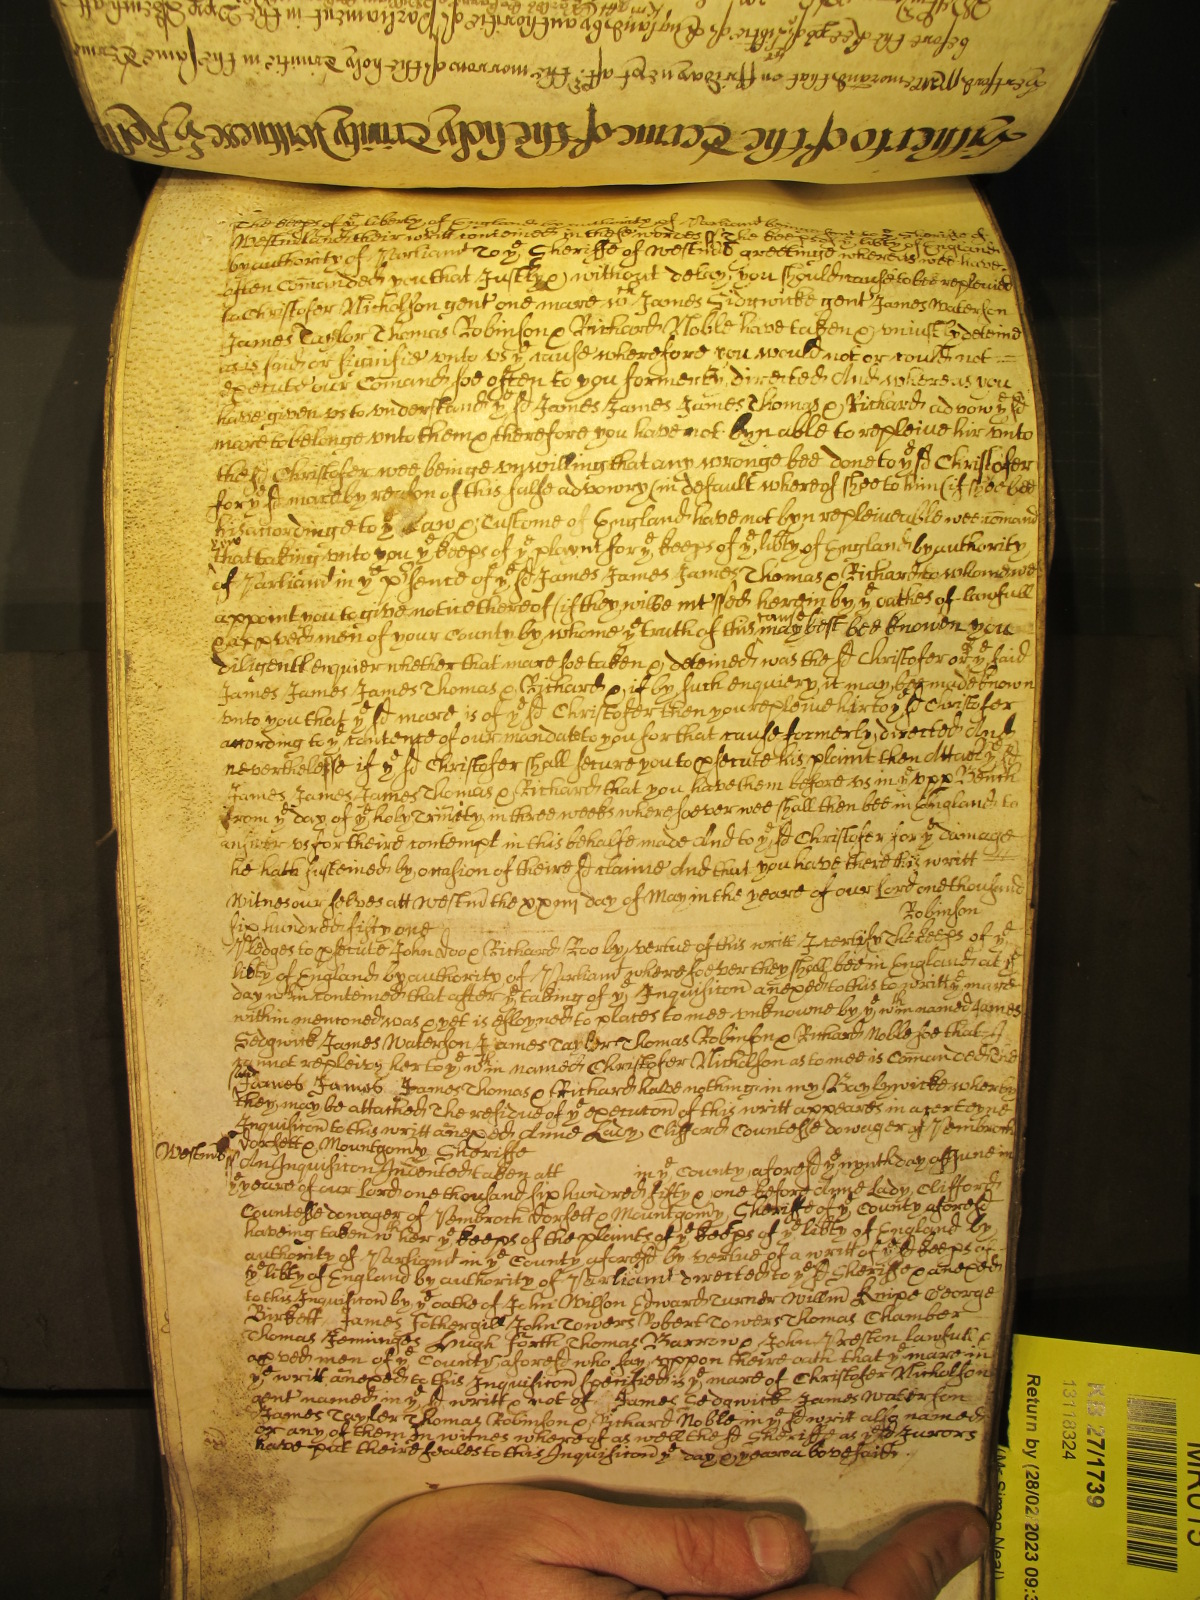 Hitherto of the Terme of the holy Trinity Witnesse
before the Keepers of the liberties of England by authoritie of Parliament in the
The keeps of ye liberty of England by authority of Parliamt
Westmland their writt conteined in these words The keeps of ye libty of England
by authority of Parliamt To ye Sheriffe of Westmld greeting whereas wee have
often comanded you that Justly & without delay you should cause to bee repleived
to Christofer Nicholson gent one mare wch James Sidgwicke gent James Waterson
James Taylor Thomas Robinson & Richard Noble have taken & uniustly deteined
as is said or signifie unto us ye cause wherefore you would not or could not
execute our Comand soe often to you formerly directed And whereas you
have given us to understand yt ye sd James James James Thomas & Richard advow ye sd
mare to belonge unto them & therefore you have not byn able to repleive hir unto
the sd Christofer wee beinge unwilling that any wronge bee done to ye sd Christofer
for ye sd mare by reason of this false advowry (in default whereof shee to him (if shee bee
his accordinge to ye Law & Custome of England have not byn repleiveable wee comand
you
that taking unto you ye keeps of ye playnt for ye keeps of ye libty of England by authority
of Parliamt in ye psence of ye sd James James James Thomas & Richard to whome wee
appoint you to give notice thereof (if they wilbe) herein by ye oathes of lawfull
& approved men of your County by whome ye truth of this cause may best bee knowen you
diligently enquier whether that mare soe taken & deteined was the sd Christofer or ye said
James James James Thomas & Richard & if by such enquiery it may bee made known
unto you that ye sd mare is of ye sd Christofer then you repleive hir to ye sd Christofer
according to ye contente of our mandate to you for that cause formerly directed And
neverthelesse if ye sd Christofer shall secure you to psecute his plaint then Attach ye sd
James James James Thomas & Richard that you have them before us in ye uppr Bench
from ye day of ye holy Trinity in three weeks wheresoever wee shall then bee in England to
answer us for their contempt in this behalfe made And to ye sd Christofer for ye damage
he hath susteined by occasion of theire sd claime And that you have there this writt
Witnes our selves att Westmr the xxiiii day of May in the yeare of our Lord one thousand
six hundred fifty one Robinson
Pledges to psecute John Doo & Richard Roo by vertue of this writt I certify the keeps of ye
libty of England by authority of Parliamt wheresoever they shall bee in England at ye
day wthin conteined that after ye taking of ye Inquisicon anexed to this writt ye mare
within mentoned was & yet is esloyned to places to mee unknowne by ye wthin named James
Sedgwick James Waterson James Tayler Thomas Robinson & Richard Noble soe that I
cannot repleivy her to ye wthin named Christofer Nicholson as to mee is Comanded
And James James James Thomas & Richard have nothing in my Baylywicke wherby
they may be attached The residue of ye execution of this writt appeares in a certeyne
Inquisicon to this writt anexed Anne Lady Clifford Countesse dowager of Pembroth
dorsett & Mountgomy Sheriffe
Westmld An Inquisicon Indented taken att in ye County aforesd ye nynth day of June in
ye yeare of our Lord one thousand six hundred fifty & one before Anne Lady Clifford
Countesse dowager of Pembroth dorsett & Mountgomy Sheriffe of ye County aforesd
haveing taken wth her ye keeps of the plaints of ye keeps of ye libty of England by
authority of Parliamt in ye County aforesd by vertue of a writt of ye sd keeps of
ye libty of England by authority of Parliamt directed to ye sd Sheriffe & anexed
to this Inquisicon by ye oathe of John Wilson Edward Turner Willm Knipe George
Birkett James Fothergill John Towers Robert Towers Thomas Chamber
Thomas Jeminges Hugh Forth Thomas Barrow & John Preston lawfull &
approved men of ye County aforesd who say uppon theire oath that ye mare in
ye writt anexed to this Inquisicon specified is ye mare of Christofer Nicholson
gent named in ye sd writt & not of James Sedgwick James Waterson
James Tayler Thomas Robinson & Richard Noble in ye sd writ also named
or any of them In witnes whereof as well the sd Sheriffe as ye sd Jurors
have put theire seales to this Inquisicon ye day & yeare above said
KB 27/1739
13118324
Return by (28/02/2023 09:3
(Mr Simon Neal)